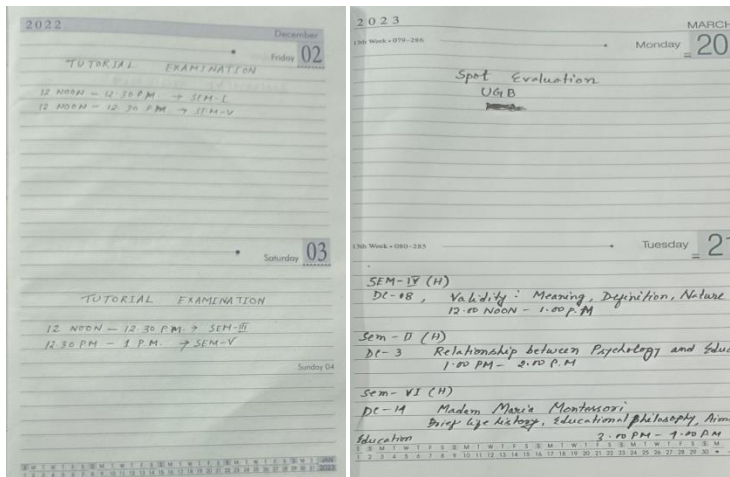 2022
December
Friday 02
TUTORIAL EXAMINATION
12 NOON - 12.30 P.M. → SEM-I
12 NOON - 12.30 P.M. → SEM-V
Saturday 03
TUTORIAL EXAMINATION
12 NOON - 12.30 P.M. → SEM-III
12.30 P.M - 1 P.M. → SEM-V
Sunday 04
JAN
2023
2023
MARCH
13th Week • 079-286
Monday 20
Spot Evaluation
UGB
13th Week • 080-285
Tuesday 2
SEM-IV (H)
DC-08, Validity: Meaning, Definition, Nature
12.00 NOON - 1.00 P.M
Sem-II (H)
DC-3 Relationship between Psychology and Educ
1.00 PM - 2.00 P.M
Sem-VI (H)
DC-14 Madam Maria Montessori
Brief life history, Educational philosophy, Aim
Education
S S M T W T F S S M T W T F S S M T W T F S S M T W T F S S M
1 2 3 4 5 6 7 8 9 10 11 12 13 14 15 16 17 18 19 20 21 22 23 24 25 26 27 28 29 30